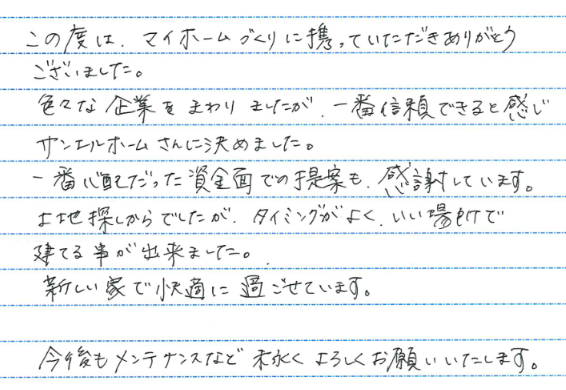 この度は、マイホームづくりに携っていただきありがとう
ございました。
色々な企業をまわりましたが、一番信頼できると感じ
サンエルホームさんに決めました。
一番心配だった資金面での提案も、感謝しています。
土地探しからでしたが、タイミングがよく、いい場所で
建てる事が出来ました。
新しい家で快適に過ごせています。
今後もメンテナンスなど末永くよろしくお願いいたします。